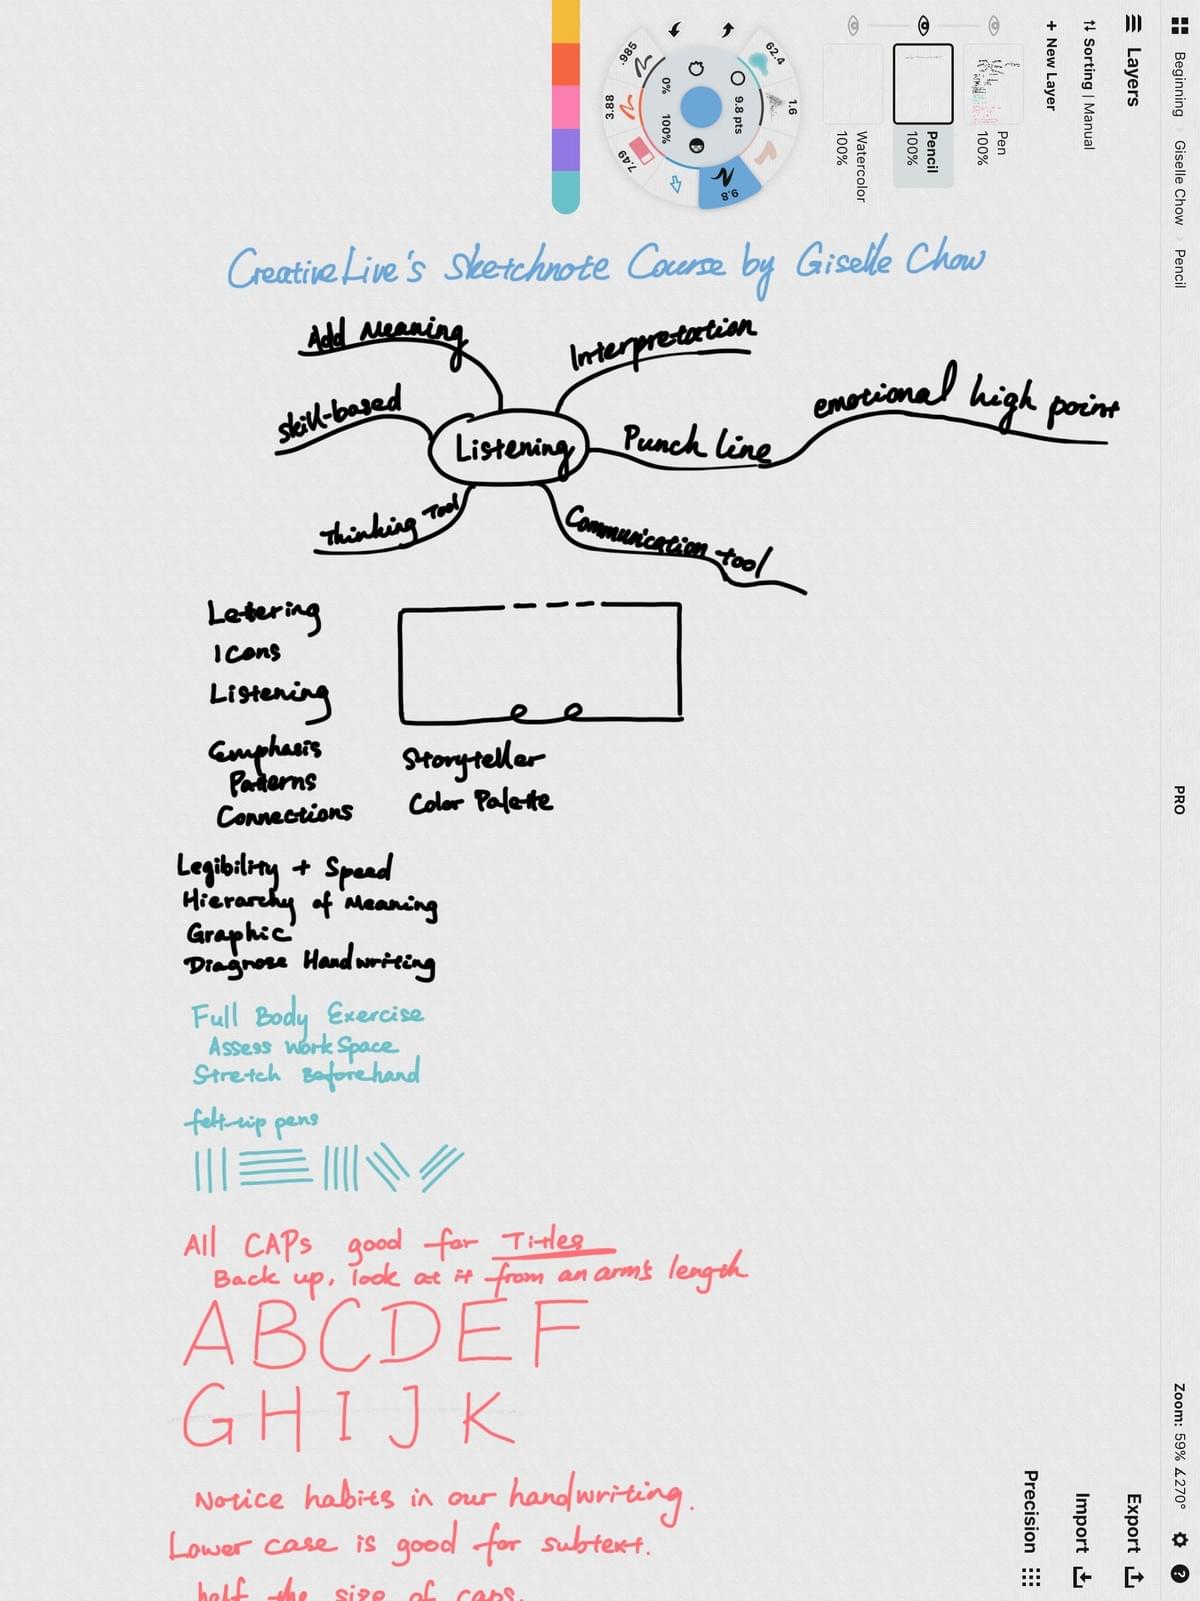 Beginning › Giselle Chow › Pencil
PRO
Zoom: 59% ∡270°
Layers
Sorting | Manual
+ New Layer
Pen
100%
Pencil
100%
Watercolor
100%
Export
Import
Precision
62.4
1.6
9.8
7.49
3.88
.985
9.8 pts
0%
100%
CreativeLive's Sketchnote Course by Giselle Chow
Add Meaning
Interpretation
skill-based
Listening
Punch line
emotional high point
Thinking Tool
Communication tool
Letering
Icons
Listening
Emphasis
Patterns
Connections
Storyteller
Color Palette
Legibility + Speed
Hierarchy of Meaning
Graphic
Diagnose Handwriting
Full Body Exercise
Assess Work Space
Stretch Beforehand
felt-tip pens
All CAPs good for Titles
Back up, look at it from an arm's length
ABCDEF
GHIJK
Notice habits in our handwriting.
Lower case is good for subtext.
half the size of caps.